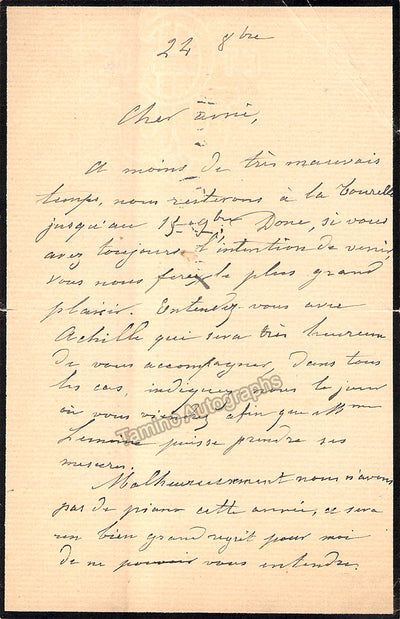 24 8bre
Cher ami,
A moins de très mauvais
temps, nous resterons à la Tourelle
jusqu'au 15 9bre. Donc, si vous
avez toujours l'intention de venir,
vous nous ferez le plus grand
plaisir. Entendez vous avec
Achille qui sera très heureux
de vous accompagner, dans tous
les cas, indiquez nous le jour
où vous viendrez afin que Mme
Lemoine puisse prendre ses
mesures.
Malheureusement nous n'avons
pas de piano cette année, ce sera
un bien grand regret pour moi
de ne pouvoir vous entendre.
Tamino Autographs